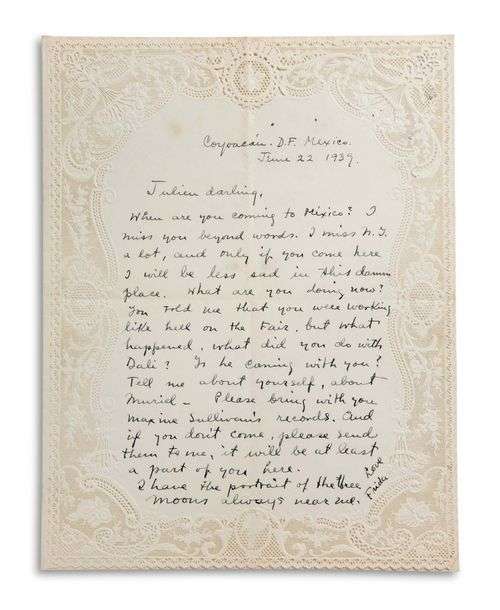 Coyoacán. D.F. Mexico.
June 22 1939.
Julien darling,
When are you coming to Mexico? I
miss you beyond words. I miss N.Y.
a lot, and only if you come here
I will be less sad in this damn
place. What are you doing now?
You told me that you were working
like hell on the Fair, but what
happened, what did you do with
Dali? Is he coming with you?
Tell me about yourself, about
Muriel – Please bring with you
Maxine Sullivan's records. And
if you don't come, please send
them to me, it will be at least
a part of you here.
I have the portrait of the three
moons always near me.
Love
Frida